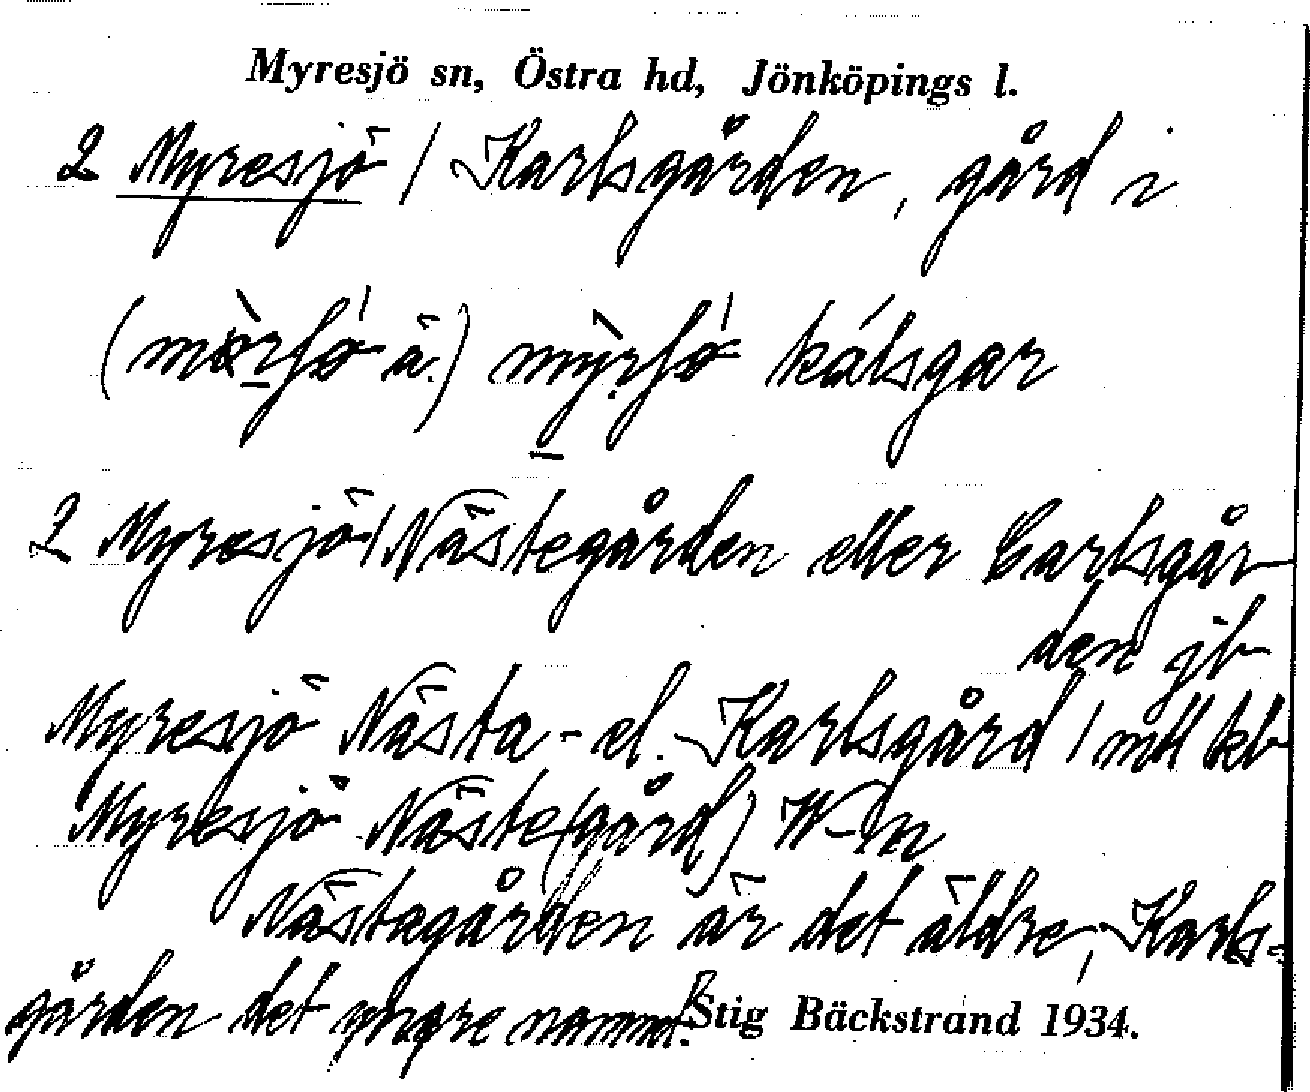 Myresjö sn, Östra hd, Jönköpings l.
2 Myresjö / Karlsgården, gård i
kálsgar
2 Myresjö / Nästegården eller Carlsgår
den jb
Myresjö Nästa- el. Karlsgård / mtl kb
Myresjö Näste(gård) W-m
Nästegården är det äldre, Karls-
gården det yngre namnet.
Stig Bäckstrand 1934.